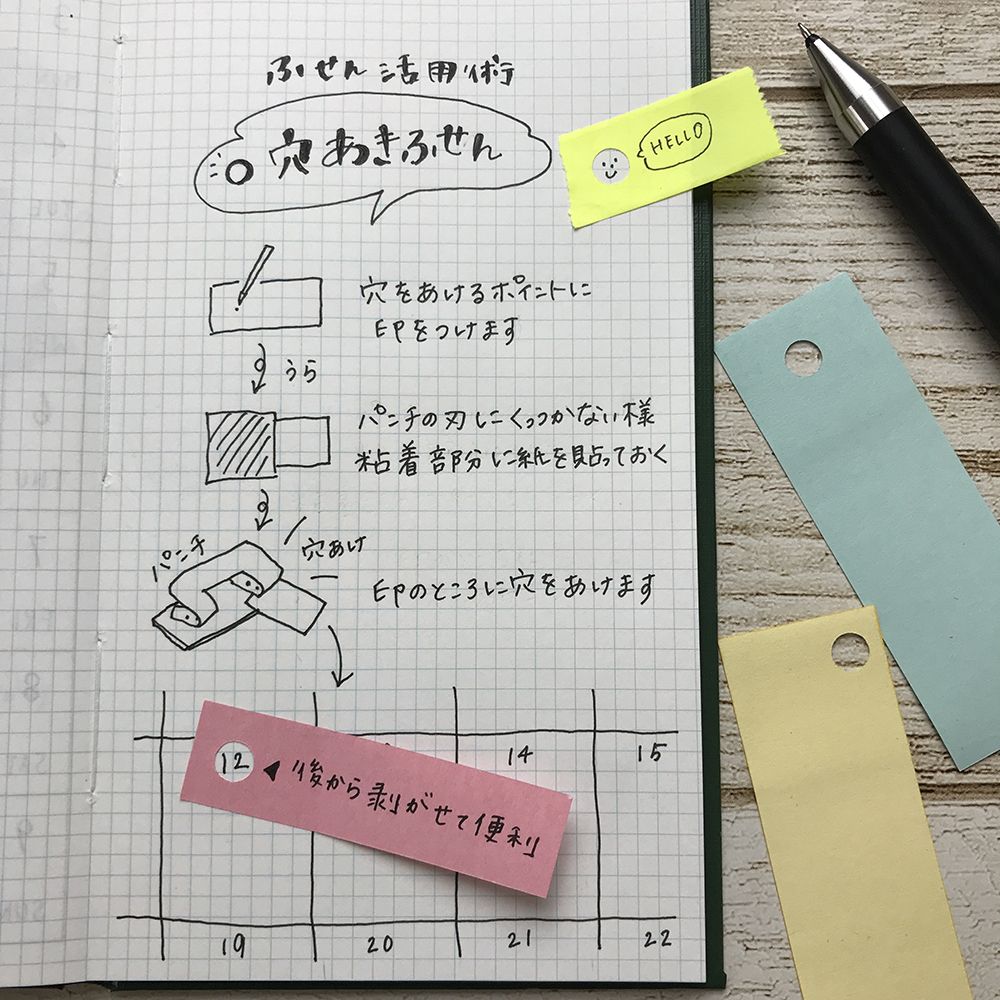 ふせん活用術
穴あきふせん
HELLO
穴をあけるポイントに
印をつけます
うら
パンチの刃にくっつかない様
粘着部分に紙を貼っておく
パンチ
穴あけ
印のところに穴をあけます
14
15
12 ◀ 後から剥がせて便利
19
20
21
22